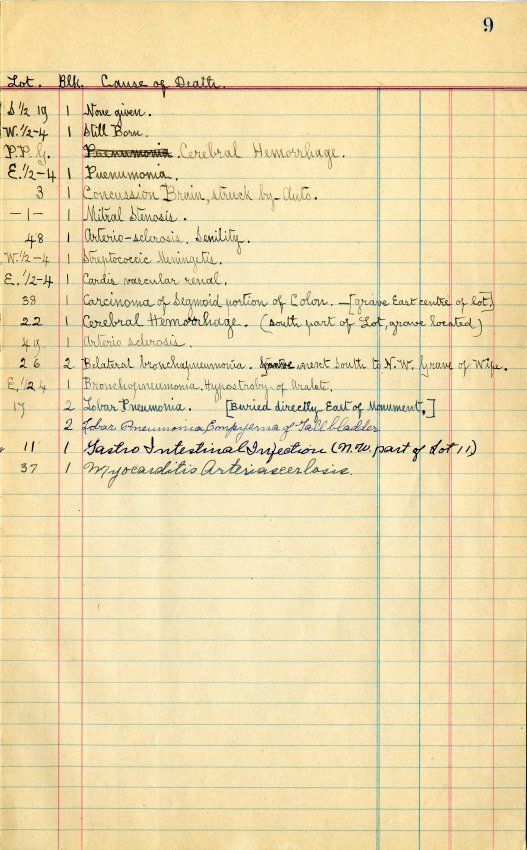 9
Lot. Blk. Cause of Death.
S 1/2 19 1 None given.
W. 1/2-4 1 Still Born.
P.P. G. Puenumonia. Cerebral Hemorrhage.
E. 1/2-4 1 Puenumonia.
3 1 Concussion Brain, struck by Auto.
-1- 1 Mitral Stenosis.
48 1 Arterio-sclerosis. Senility.
W. 1/2-4 1 Streptococcic Meningetes.
E. 1/2-4 1 Cardis vascular renal.
38 1 Carcinoma of Segmoid portion of Colon. - [grave East centre of lot]
22 1 Cerebral Hemorrhage. (south part of Lot, grave located)
49 1 Arterio sclerosis.
26 2 Belateral bronchapneumonia. next South to N.W. Grave of Wife.
E. 1/2 4 1 Bronchopneumonia, of
17 2 Lobar Pneumonia. [Buried directly East of Monument.]
2 Lobar Pneumonia, Empyema of Gall bladder
11 1 Gastro Intestinal Infection (N.W. part of Lot 11)
37 1 Myocarditis Arteriascerlosis.